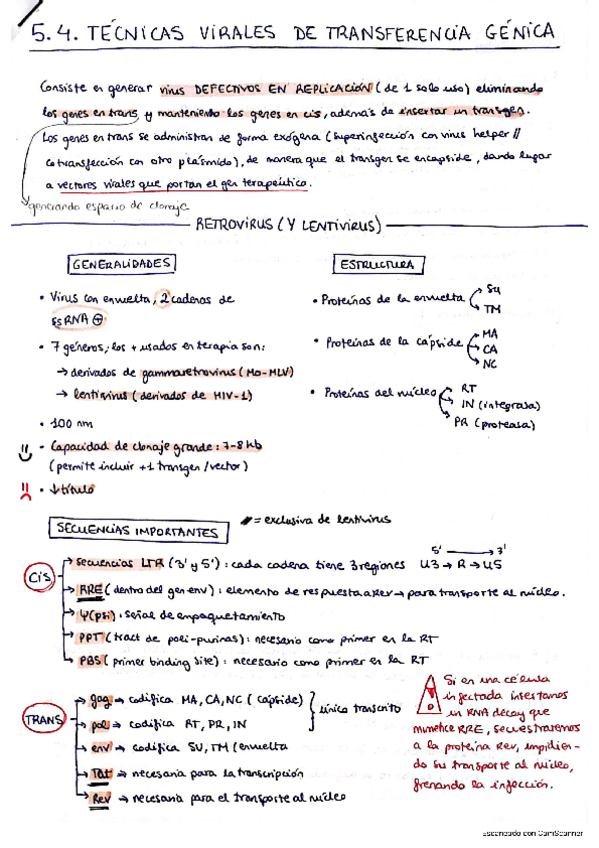 5.4. TÉCNICAS VIRALES DE TRANSFERENCIA GÉNICA
Consiste en generar virus DEFECTIVOS EN REPLICACIÓN (de 1 solo uso) eliminando
los genes en trans y manteniendo los genes en cis, además de insertar un transgen.
Los genes en trans se administran de forma exógena (superinfección con virus helper //
cotransfección con otro plásmido), de manera que el transgen se encapside, dando lugar
a vectores virales que portan el gen terapéutico.
generando espacio de clonaje
RETROVIRUS (Y LENTIVIRUS)
GENERALIDADES
• Virus con envuelta, 2 cadenas de
ssRNA ⊕
• 7 géneros; los + usados en terapia son:
→ derivados de gammaretrovirus (Mo-MLV)
→ lentivirus (derivados de HIV-1)
• 100 nm
• Capacidad de clonaje grande: 7-8 Kb
(permite incluir +1 transgen/vector)
• ↓título
ESTRUCTURA
• Proteínas de la envuelta → SU
→ TM
• Proteínas de la cápside → MA
→ CA
→ NC
• Proteínas del núcleo → RT
→ IN (integrasa)
→ PR (proteasa)
SECUENCIAS IMPORTANTES
= exclusiva de lentivirus
CIS
→ secuencias LTR (3' y 5'): cada cadena tiene 3 regiones 5' → 3' U3 → R → U5
→ RRE (dentro del gen env): elemento de respuesta a Rev → para transporte al núcleo.
→ Ψ(psi): señal de empaquetamiento
→ PPT (tract de poli-purinas): necesario como primer en la RT
→ PBS (primer binding site): necesario como primer en la RT
TRANS
→ gag → codifica MA, CA, NC (cápside)
→ pol → codifica RT, PR, IN
único transcrito
→ env → codifica SU, TM (envuelta
→ Tat → necesaria para la transcripción
→ Rev → necesaria para el transporte al núcleo
Si en una célula
infectada insertamos
un RNA decay que
mimetice RRE, secuestraremos
a la proteína Rev, impidien-
do su transporte al núcleo,
frenando la infección.
Escaneado con CamScanner